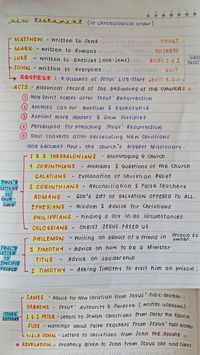 new testament (in chronological order)
MATTHEW - written to Jews
MARK - written to Romans
LUKE - written to Gentiles (non-Jews)
JOHN - written to everyone
GOSPELS : 4 accounts of Jesus' life story
ACTS - Historical record of the beginning of the churches
① Holy Spirit comes after Jesus' Resurrection
② Apostles call for Baptism & Repentance
③ Appoint more leaders & grow Disciples
④ Persecuted for preaching Jesus' Resurrection
⑤ Saul converts after persecuting New Christians
and becomes Paul, the Church's biggest Missionary.
1 & 2 THESSALONIANS - Encouraging a church
1 CORINTHIANS - Problems & Questions of the church
GALATIANS - Explanation of Christian Belief
2 CORINTHIANS - Reconciliation & False Teachers
ROMANS - God's gift of salvation offered to all.
EPHESIANS - Wisdom & Advice for Christians
PHILIPPIANS - Finding a joy in all circumstances
COLOSSIANS - Christ Jesus freed us
PHILEMON - Writing on behalf of a friend in Prison to owner.
1 TIMOTHY - Advice on how to be a Minister
TITUS - Advice on Leadership
2 TIMOTHY - Asking Timothy to visit him on prison.
PAUL'S LETTER TO CHURCHES
PAUL'S LETTER TO SPECIFIC PEOPLE
JAMES - Advice for New Christian from Jesus'
HEBREWS - Jesus' Authority & Purpose (writer unknown)
1 & 2 PETER - Letters to Jewish Christians from Peter the Apostle
JUDE - Warnings about false teachers from Jesus'
1, 2 & 3 JOHN - Letters to Christians from John the Apostle
REVELATION - Prophecy given to John from Jesus